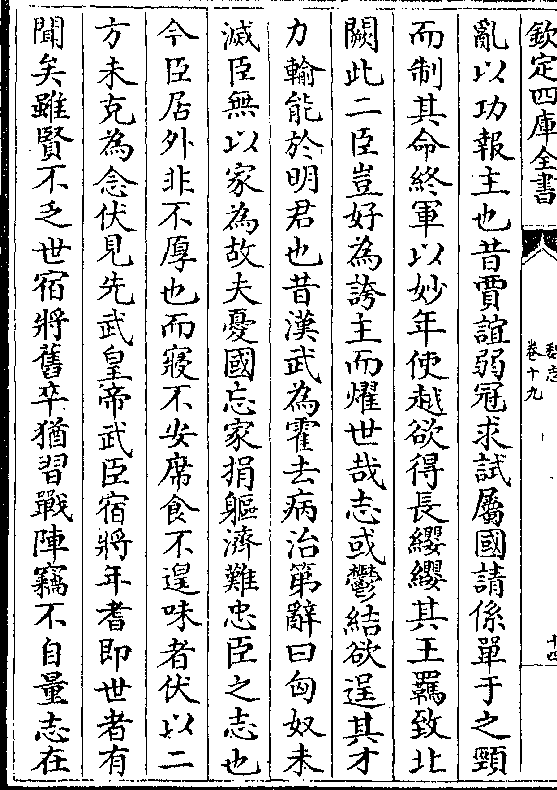 欽定四庫全書
魏志
卷十九
十四
亂以功報主也昔賈誼弱冠求試屬國請係單于之頸
而制其命終軍以妙年使越欲得長纓纓其王羈致北
闕此二臣豈好為誇主而燿世哉志或鬱結欲逞其才
力輸能於明君也昔漢武為霍去病治第辭曰匈奴未
滅臣無以家為故夫憂國忘家捐軀濟難忠臣之志也
今臣居外非不厚也而寢不安席食不遑味者伏以二
方未克為念伏見先武皇帝武臣宿將年耆即世者有
聞矣雖賢不乏世宿將舊卒猶習戰陣竊不自量志在